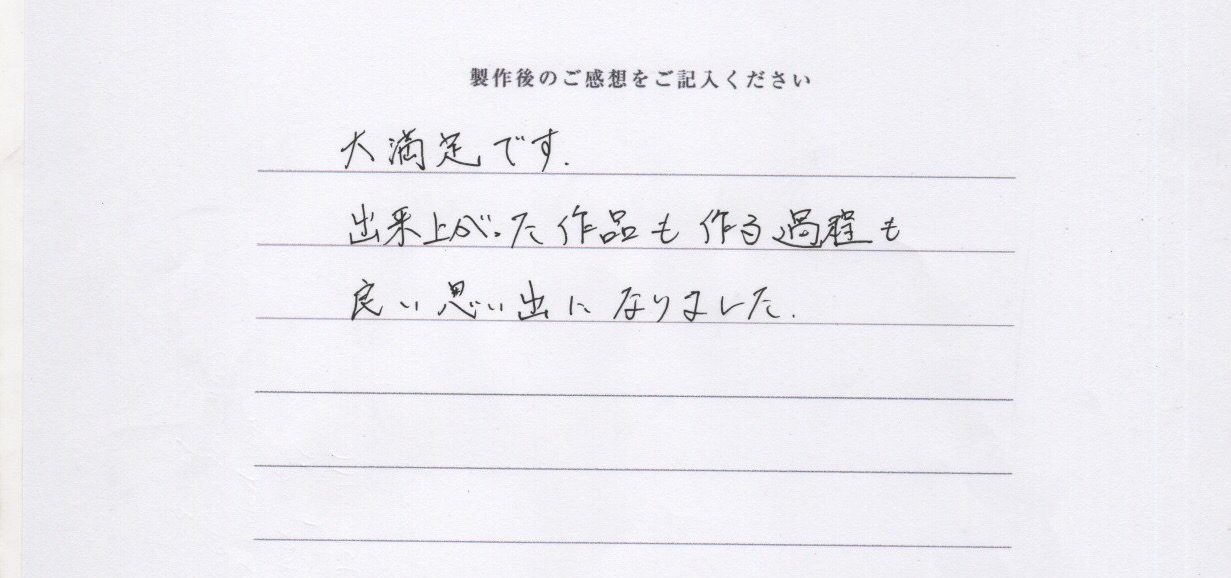 製作後のご感想をご記入ください
大満足です.
出来上がった作品も作る過程も
良い思い出になりました.